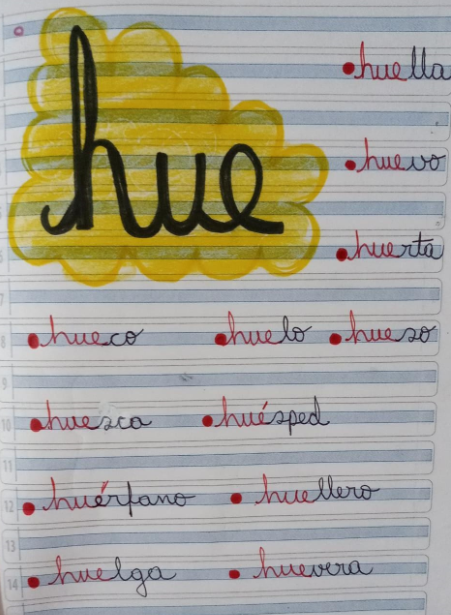 hue
huella
huevo
huerta
hueco huelo hueso
huesca huésped
huérfano huellero
huelga huevera